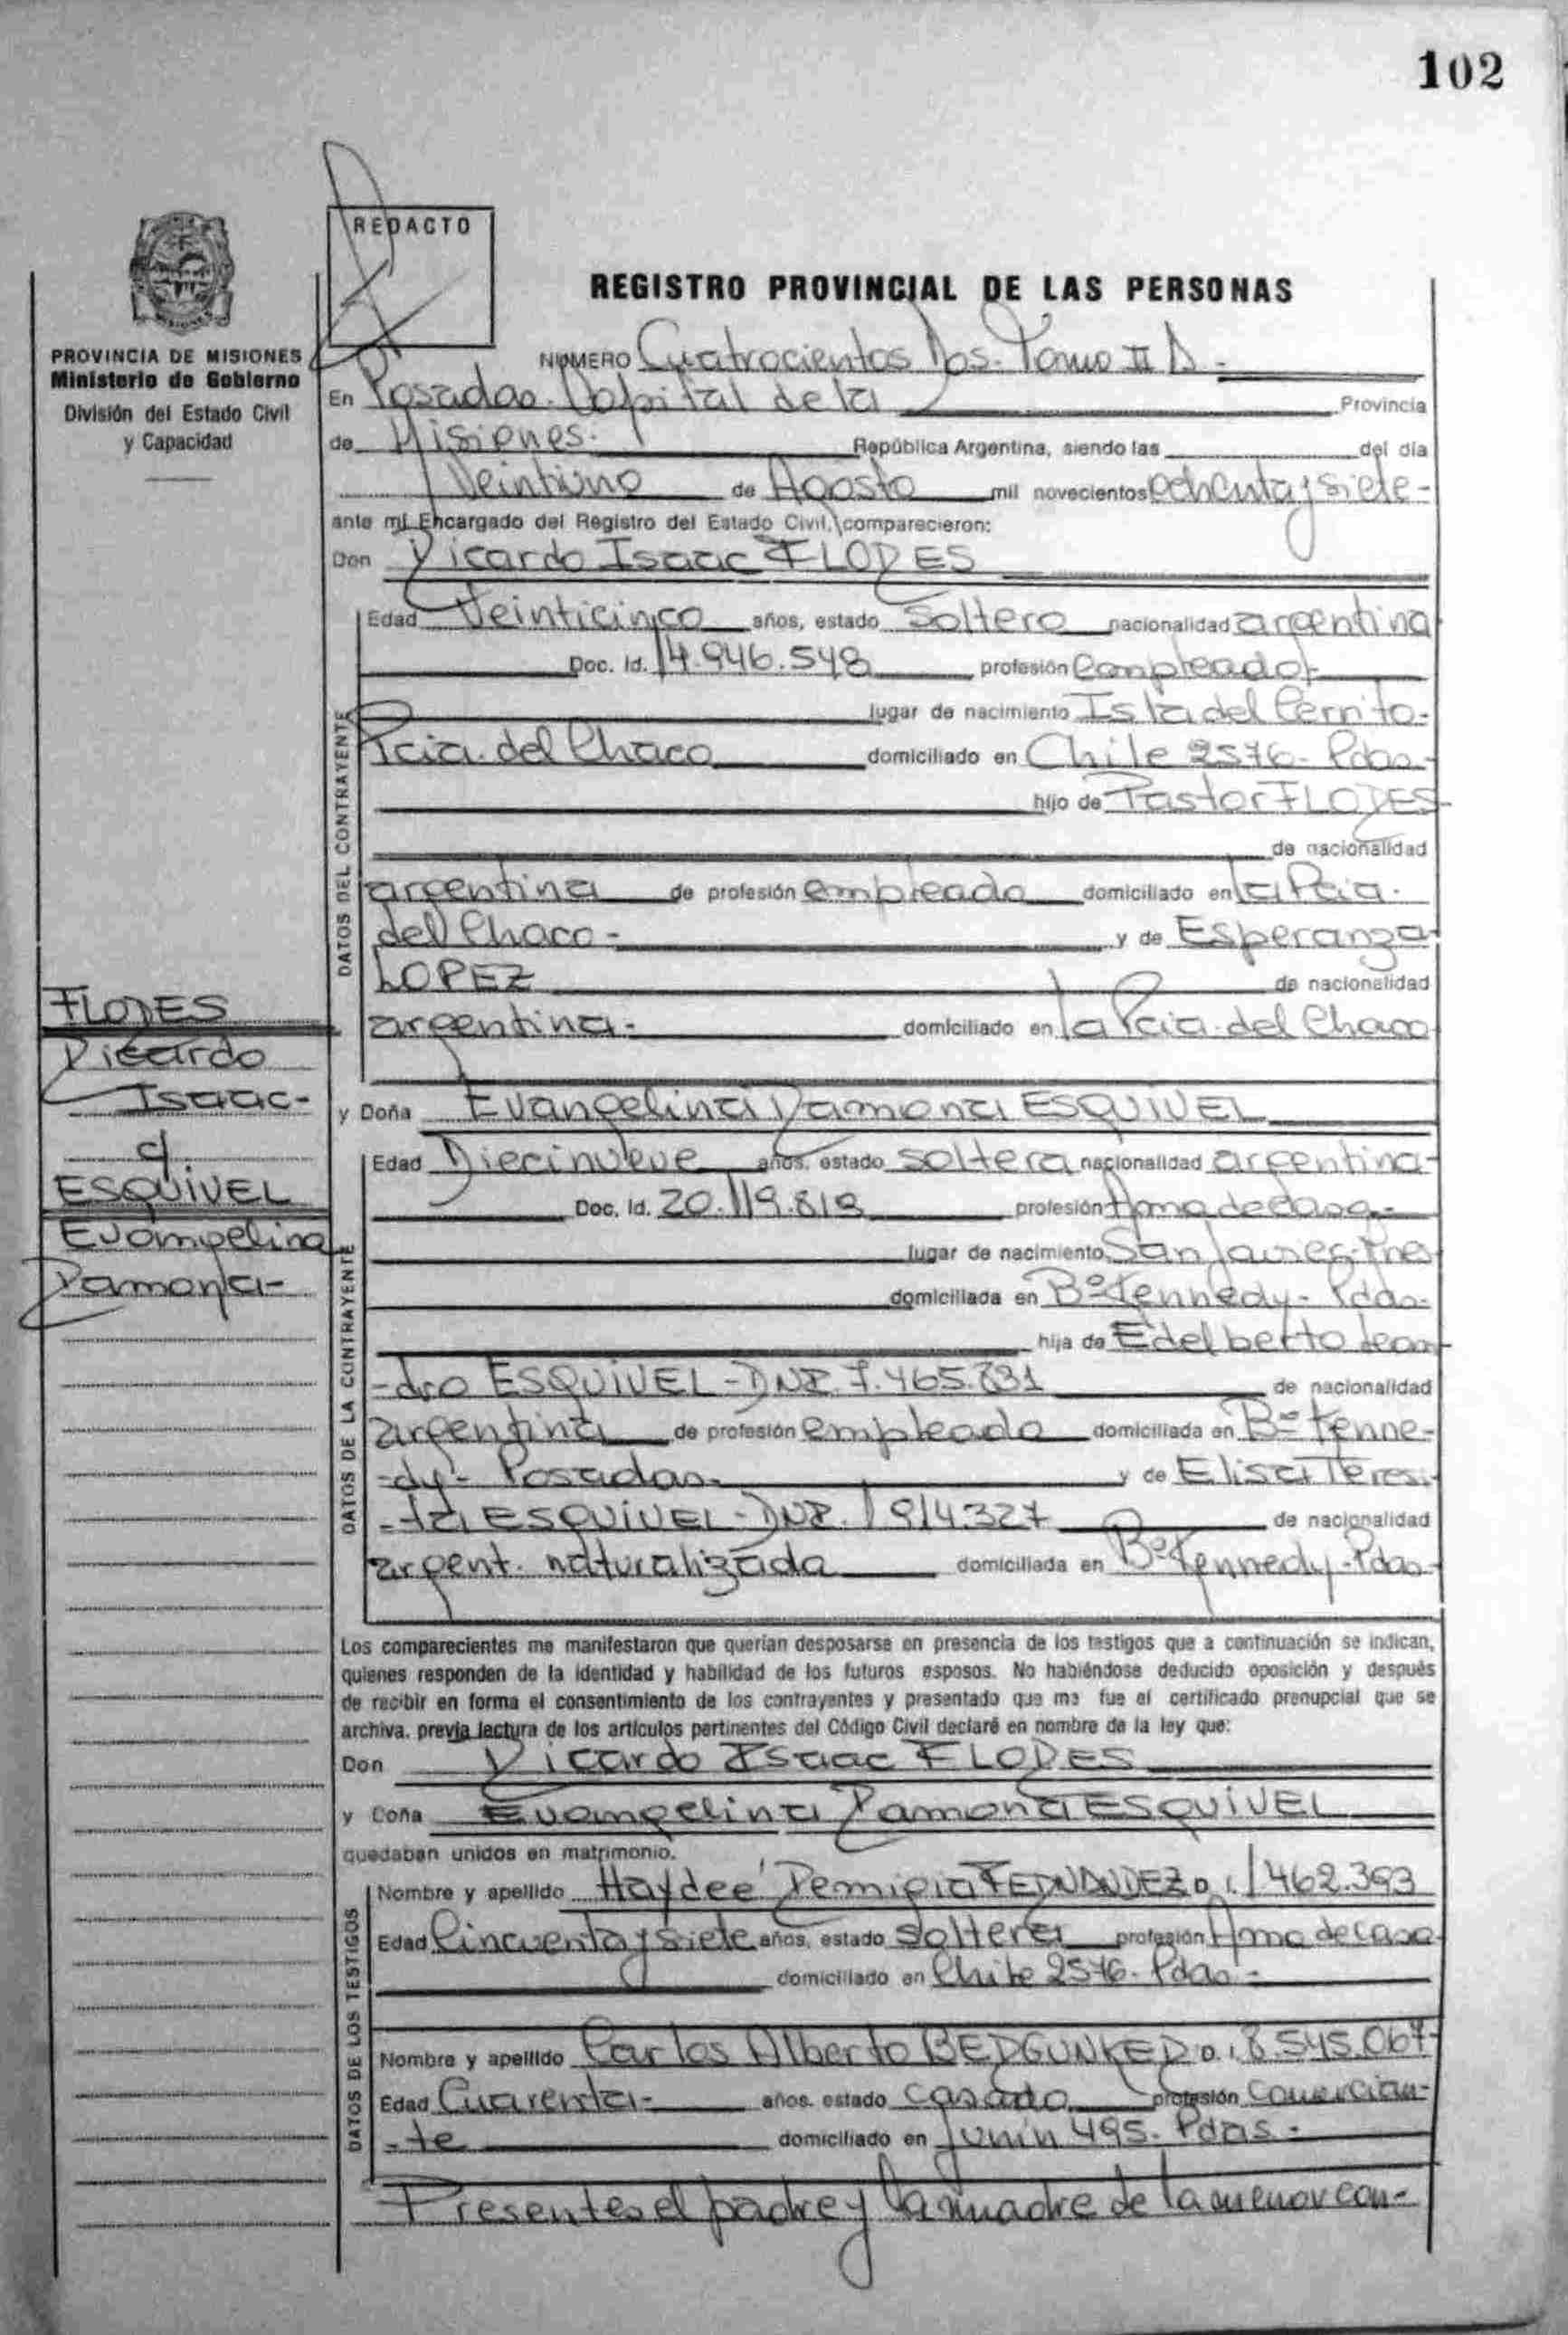 102
REDACTO
REGISTRO PROVINCIAL DE LAS PERSONAS
PROVINCIA DE MISIONES
Ministerio de Gobierno
División del Estado Civil
y Capacidad
NUMERO Cuatrocientos Dos. Tomo II D.-
En Posadas. Capital de la Provincia
de Misiones. República Argentina, siendo las del día
Veintiuno de Agosto mil novecientos ochenta y siete-
ante mí Encargado del Registro del Estado Civil, comparecieron:
Don Ricardo Isaac FLORES
DATOS DEL CONTRAYENTE
Edad Veinticinco años, estado soltero nacionalidad argentina
Doc. Id. 14.946.548 profesión empleado-
lugar de nacimiento Isla del Cerrito-
Pcia. del Chaco domiciliado en Chile 2576- Pdas-
hijo de Pastor FLORES-
de nacionalidad
argentina de profesión empleado domiciliado en la Pcia.
del Chaco- y de Esperanza
LOPEZ de nacionalidad
argentina- domiciliado en la Pcia. del Chaco
FLORES
Ricardo
Isaac-
c/
ESQUIVEL
Evangelina
Ramona-
y Doña Evangelina Ramona ESQUIVEL
DATOS DE LA CONTRAYENTE
Edad Diecinueve años, estado soltera nacionalidad argentina-
Doc. Id. 20.119.819 profesión Ama de casa-
lugar de nacimiento San Javier-
domiciliada en Bº Kennedy- Pdas-
hija de Edelberto Lean
-dro ESQUIVEL-DNI. 7.465.831 de nacionalidad
argentina de profesión empleado domiciliada en Bº Kenne-
-dy- Posadas- y de Elisa Teresi
-ta ESQUIVEL-DNI. 1914.327 de nacionalidad
argent. naturalizada domiciliada en Bº Kennedy-Pdas-
Los comparecientes me manifestaron que querían desposarse en presencia de los testigos que a continuación se indican,
quienes responden de la identidad y habilidad de los futuros esposos. No habiéndose deducido oposición y después
de recibir en forma el consentimiento de los contrayentes y presentado que me fue el certificado prenupcial que se
archiva, previa lectura de los artículos pertinentes del Código Civil declaré en nombre de la ley que:
Don Ricardo Isaac FLORES
y Doña Evangelina Ramona ESQUIVEL
quedaban unidos en matrimonio.
DATOS DE LOS TESTIGOS
Nombre y apellido Haydee Remigia FERNANDEZ D.I. 1462.393
Edad Cincuenta y siete años, estado soltera profesión Ama de casa
domiciliado en Chile 2576- Pdas-
Nombre y apellido Carlos Alberto BERGUNKER D.I. 8.545.067-
Edad Cuarenta- años. estado casado profesión Comercian-
-te domiciliado en Junín 495- Pdas-
Presentes el padre y la madre de la menor con-